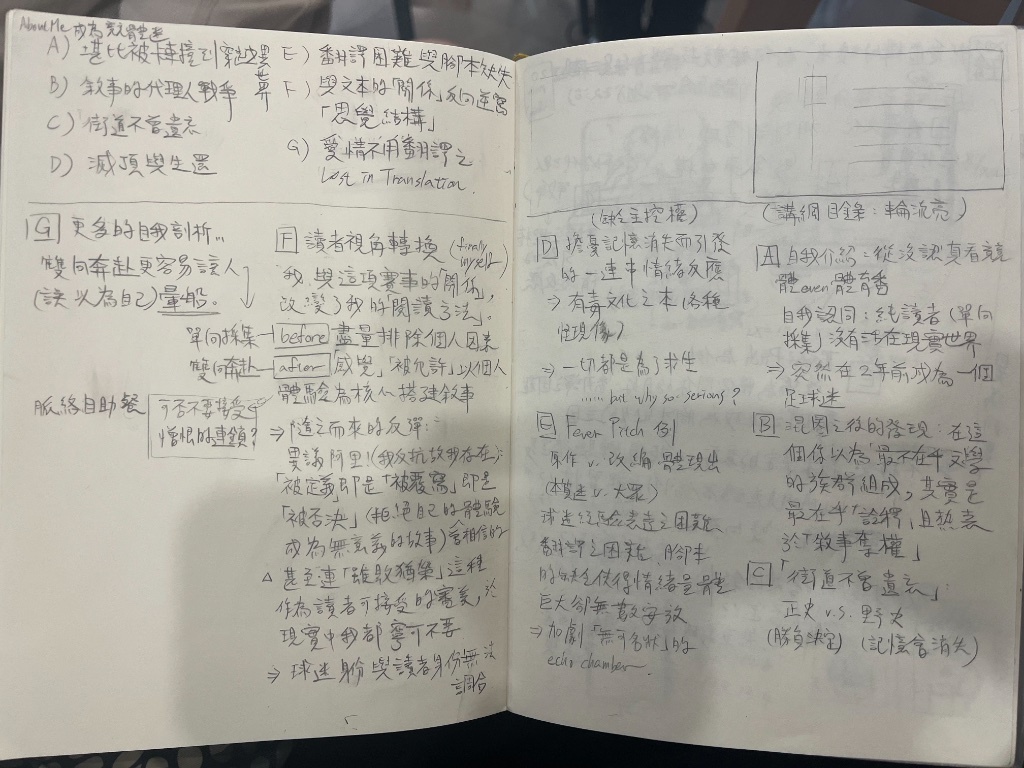 About Me 成為競體迷
A) 堪比被車撞到穿越異
界
B) 敘事的代理人戰爭
C) 街道不會遺忘
D) 滅頂與生還
E) 翻譯困難與腳本缺失
F) 與文本的「關係」反向逆寫
「思覺結構」
G) 愛情不用翻譯之
Lost in Translation.
G 更多的自我剖析...
雙向奔赴更容易讓人
(誤以為自己)暈船。
單向採集 before 盡量排除個人因素
雙向奔赴 after 「感覺」「被允許」以個人
體驗為核心搭建敘事
脈絡自助餐
可否不要接受
憎恨的連鎖?
F 讀者視角轉換 (finally myself)
我與這項賽事的「關係」,
改變了我的「閱讀方法」。
⇒ 隨之而來的反彈:
異議阿里!(我反抗故我存在):
「被定義」即是「被覆寫」即是
「被否決」(拒絕自己的體驗
成為無意義的故事) 會相信的
△ 甚至連「雖敗猶榮」這種
作為讀者可接受的審美,於
現實中我都寧可不要
⇒ 球迷身份與讀者身份無法
調合
(缺主控權)
D 擔憂記憶消失而引發
的一連串情緒反應
⇒ 有毒文化之本(各種
怪現像)
⇒ 一切都是為了求生
...... but why so serious?
E Fever Pitch 例
原作 v. 改編 體現出
(本質迷 v. 大眾)
球迷經驗表達之困難
翻譯之困難,腳本
的缺乏使得情緒量體
巨大卻無數安放
⇒ 加劇「無可名狀」的
echo chamber
(講綱目錄:輪流亮)
A 自我介紹:從沒認真看競
體 even 體育番
自我認同:純讀者(單向
採集)沒有活在現實世界
⇒ 突然在2年前成為一個
足球迷
B 混圈之後的發現:在這
個你以為最不在乎文學
的族群組成,其實是
最在乎「詮釋」且熱衷
於「敘事奪權」
C 「街道不會遺忘」:
正史 v.s. 野史
(勝負決定) (記憶會消失)